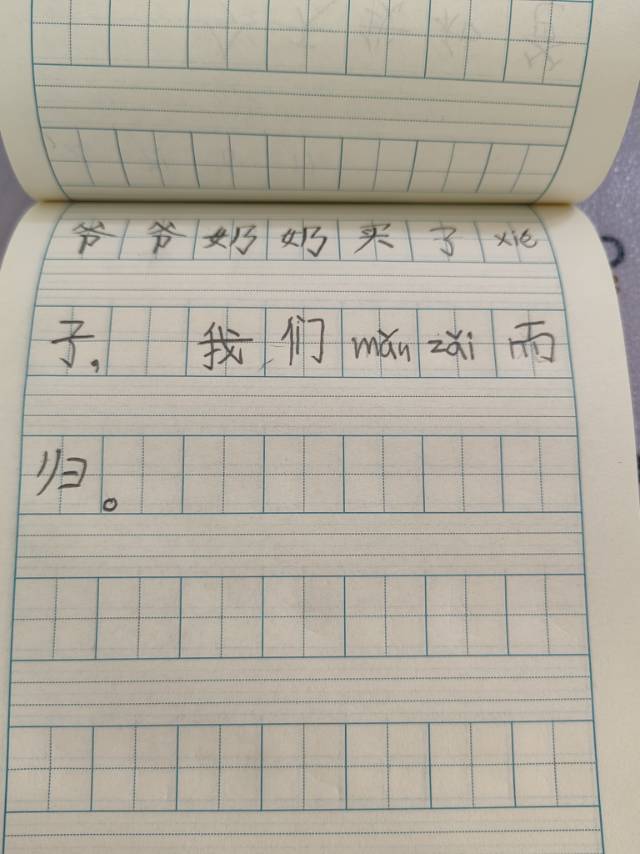 爷爷奶奶买了xié
子,我们mǎnzǎi雨
归。